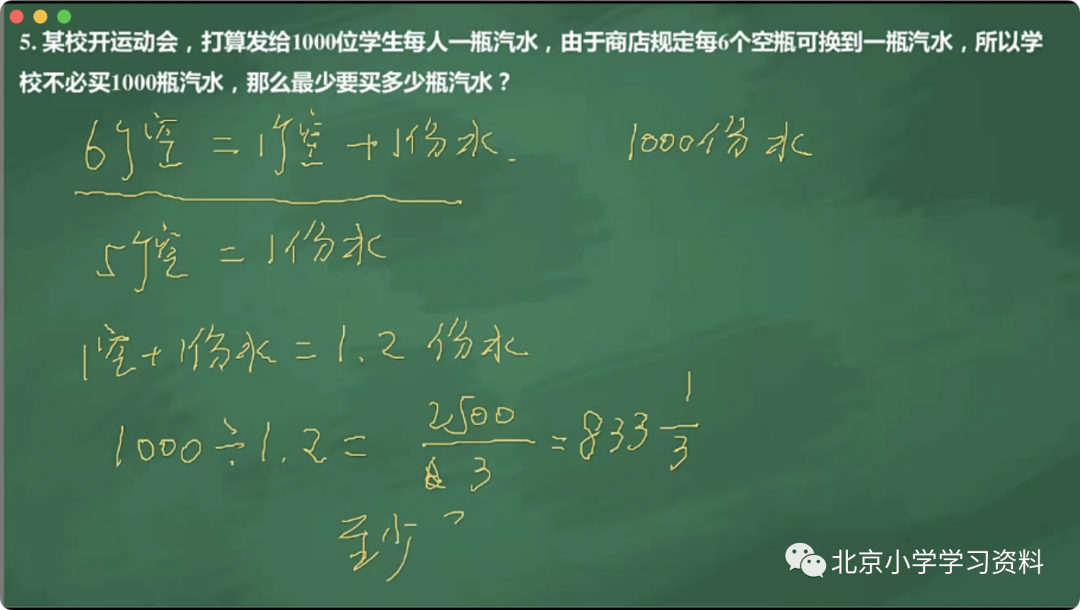 5. 某校开运动会，打算发给1000位学生每人一瓶汽水，由于商店规定每6个空瓶可换到一瓶汽水，所以学
校不必买1000瓶汽水，那么最少要买多少瓶汽水？
6个空 = 1个空 + 1份水 1000份水
5个空 = 1份水
1空 + 1份水 = 1.2 份水
1000 ÷ 1.2 = 2500/3 = 833 1/3
至少
北京小学学习资料